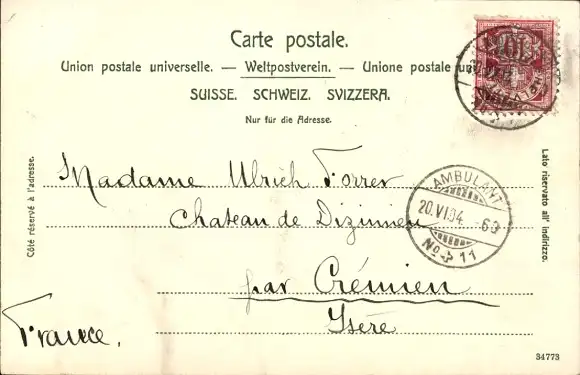 Carte postale.
Union postale universelle. — Weltpostverein. — Unione postale
SUISSE. SCHWEIZ. SVIZZERA.
Nur für die Adresse.
Côté réservé à l'adresse.
Lato riservato all' indirizzo.
Madame Ulrich Forrer
Chateau de Dizimieu
par Crémieu
Isère
France.
AMBULANT
20.VI.04 -6
No 11
34773